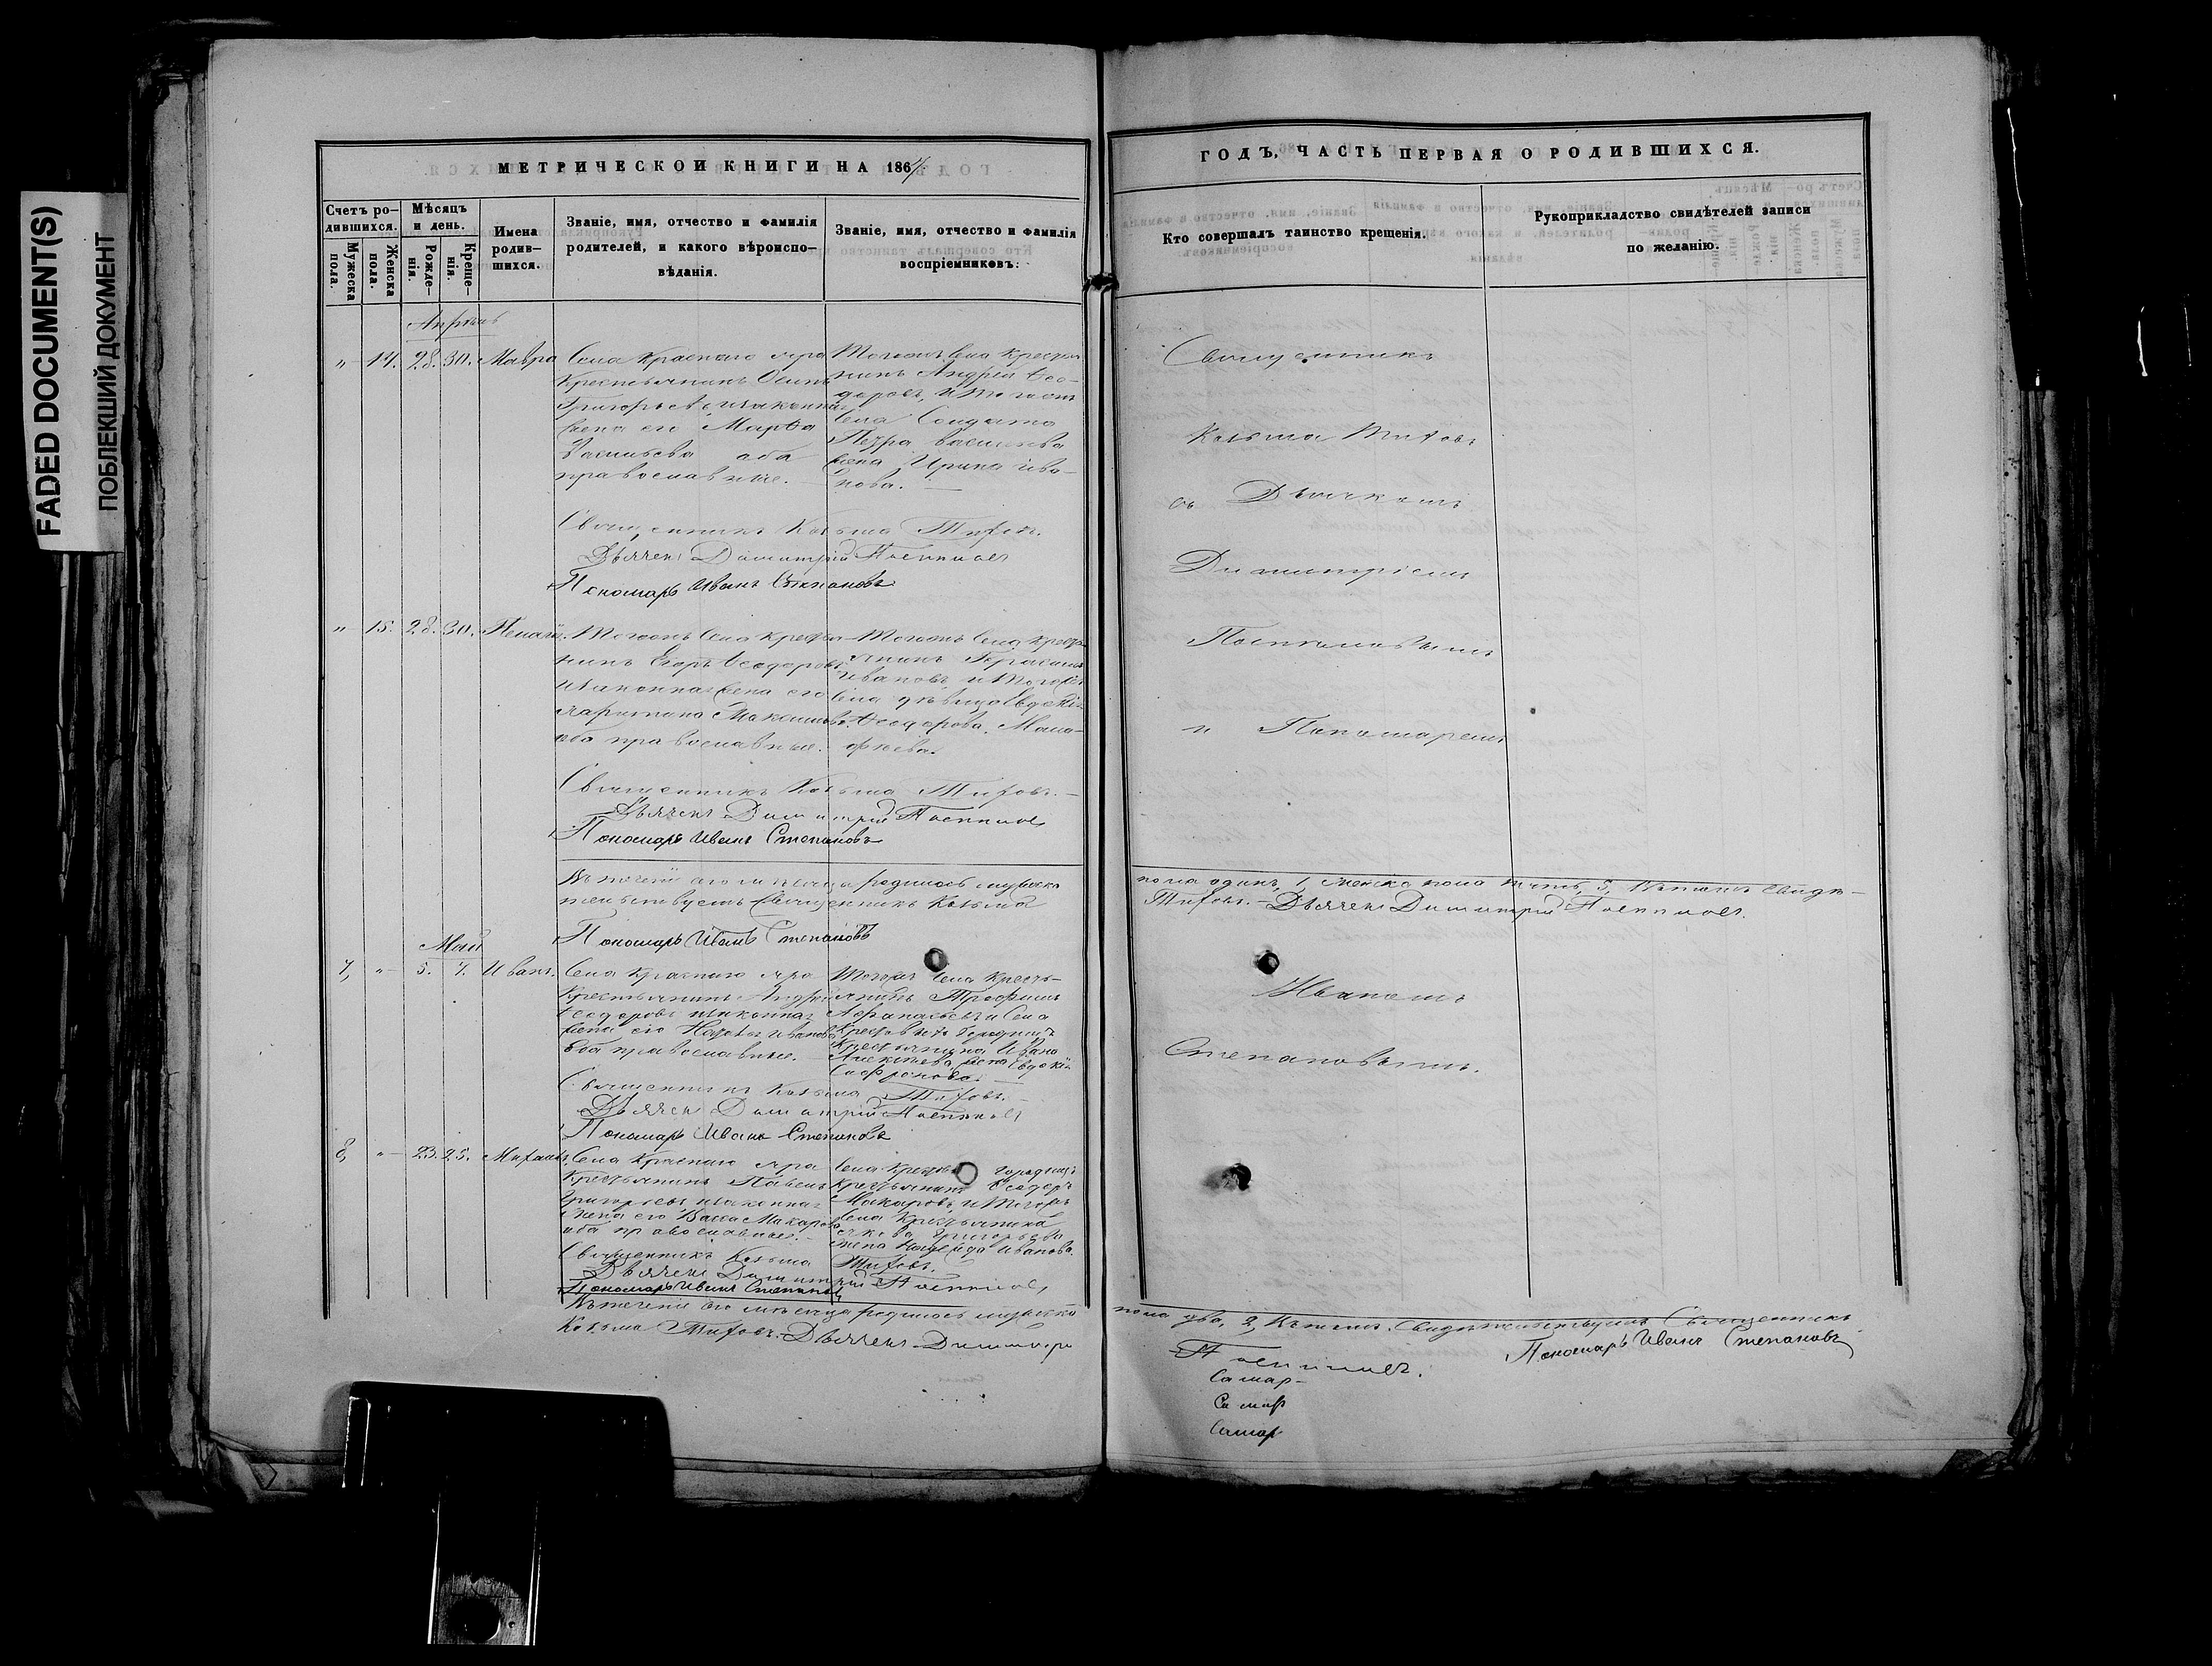 FADED DOCUMENT(S)
ПОБЛЕКШИЙ ДОКУМЕНТ
МЕТРИЧЕСКОЙ КНИГИ НА 1864
Счетъ ро-
дившихся.
Мужеска
пола.
Женска
пола.
Мѣсяцъ
и день.
Рожде-
нія.
Креще-
нія.
Имена
родив-
шихся.
Званіе, имя, отчество и фамилія
родителей, и какого вѣроиспо-
вѣданія.
Званіе, имя, отчество и фамилія
воспріемниковъ:
Апрѣль
" 14. 28. 30. Мавра
Села Краснаго Яра
Крестьянинъ Осипъ
Григорьевъ и законная
жена его Марфа
Васильева оба
православные.
Тогоже Села Крестья
нинъ Андрей Ѳео-
доровъ, и тогоже
Села Солдата
Петра Васильева
жена Ирина Ива-
нова.
Священникъ Козьма Титовъ.
Дьячекъ Димитрій Поспѣловъ
Пономарь Иванъ Степановъ
" 15. 28. 30. Пелагія.
Тогоже Села Крестья-
нинъ Егоръ Ѳеодоровъ
и законная жена его
Харитина Максимова
оба православные.
Тогоже Села Кресть
янинъ Герасимъ
Ивановъ и тогоже
Села дѣвица Евдокія
Ѳеодорова
Священникъ Козьма Титовъ.
Дьячекъ Димитрій Поспѣловъ
Пономарь Иванъ Степановъ
Въ теченіи сего мѣсяца родилось мужеска
тельствуемъ Священникъ Козьма
Пономарь Иванъ Степановъ
Май
7, " 5. 7. Иванъ.
Села Краснаго Яра
Крестьянинъ Андрей
Ѳеодоровъ и законная
жена его Ивановa
Оба православные.
Тогоже Села Кресть-
янинъ Трофимъ
Аѳанасьевъ и Села
Крестовыхъ Городищъ
Крестьянина Ивана
Алексѣева жена Евдокія
Сафронова.
Священникъ Козьма Титовъ.
Дьячекъ Димитрій Поспѣловъ
Пономарь Иванъ Степановъ
8, " 23. 25. Михаилъ.
Села Краснаго Яра
Крестьянинъ Павелъ
Григорьевъ и законная
жена его Васса Макарова
оба православные.
Села Крестов. Городищъ
Крестьянинъ Ѳедоръ
Макаровъ, и тогоже
Села Крестьянина
Якова Григорьева
жена Надежда Иванова.
Священникъ Козьма Титовъ.
Дьячекъ Димитрій Поспѣловъ
Пономарь Иванъ Степановъ
Въ теченіе сего мѣсяца родилось мужеска
Козьма Титовъ. Дьячекъ Димитрій
ГОДЪ, ЧАСТЬ ПЕРВАЯ О РОДИВШИХСЯ.
Кто совершалъ таинство крещенія.
Рукоприкладство свидѣтелей записи
по желанію.
Священникъ
Козьма Титовъ
съ Дьячкомъ
Димитріемъ
Поспѣловымъ
и Пономаремъ
пола одинъ, 1, женска пола пять, 5, Въ томъ свидѣ-
Титовъ. Дьячекъ Димитрій Поспѣловъ.
Иваномъ
Степановымъ.
пола два, 2, Свидѣтельствуемъ Священникъ
Поспѣловъ.
Пономарь Иванъ Степановъ
Самар-
Самар
Самар